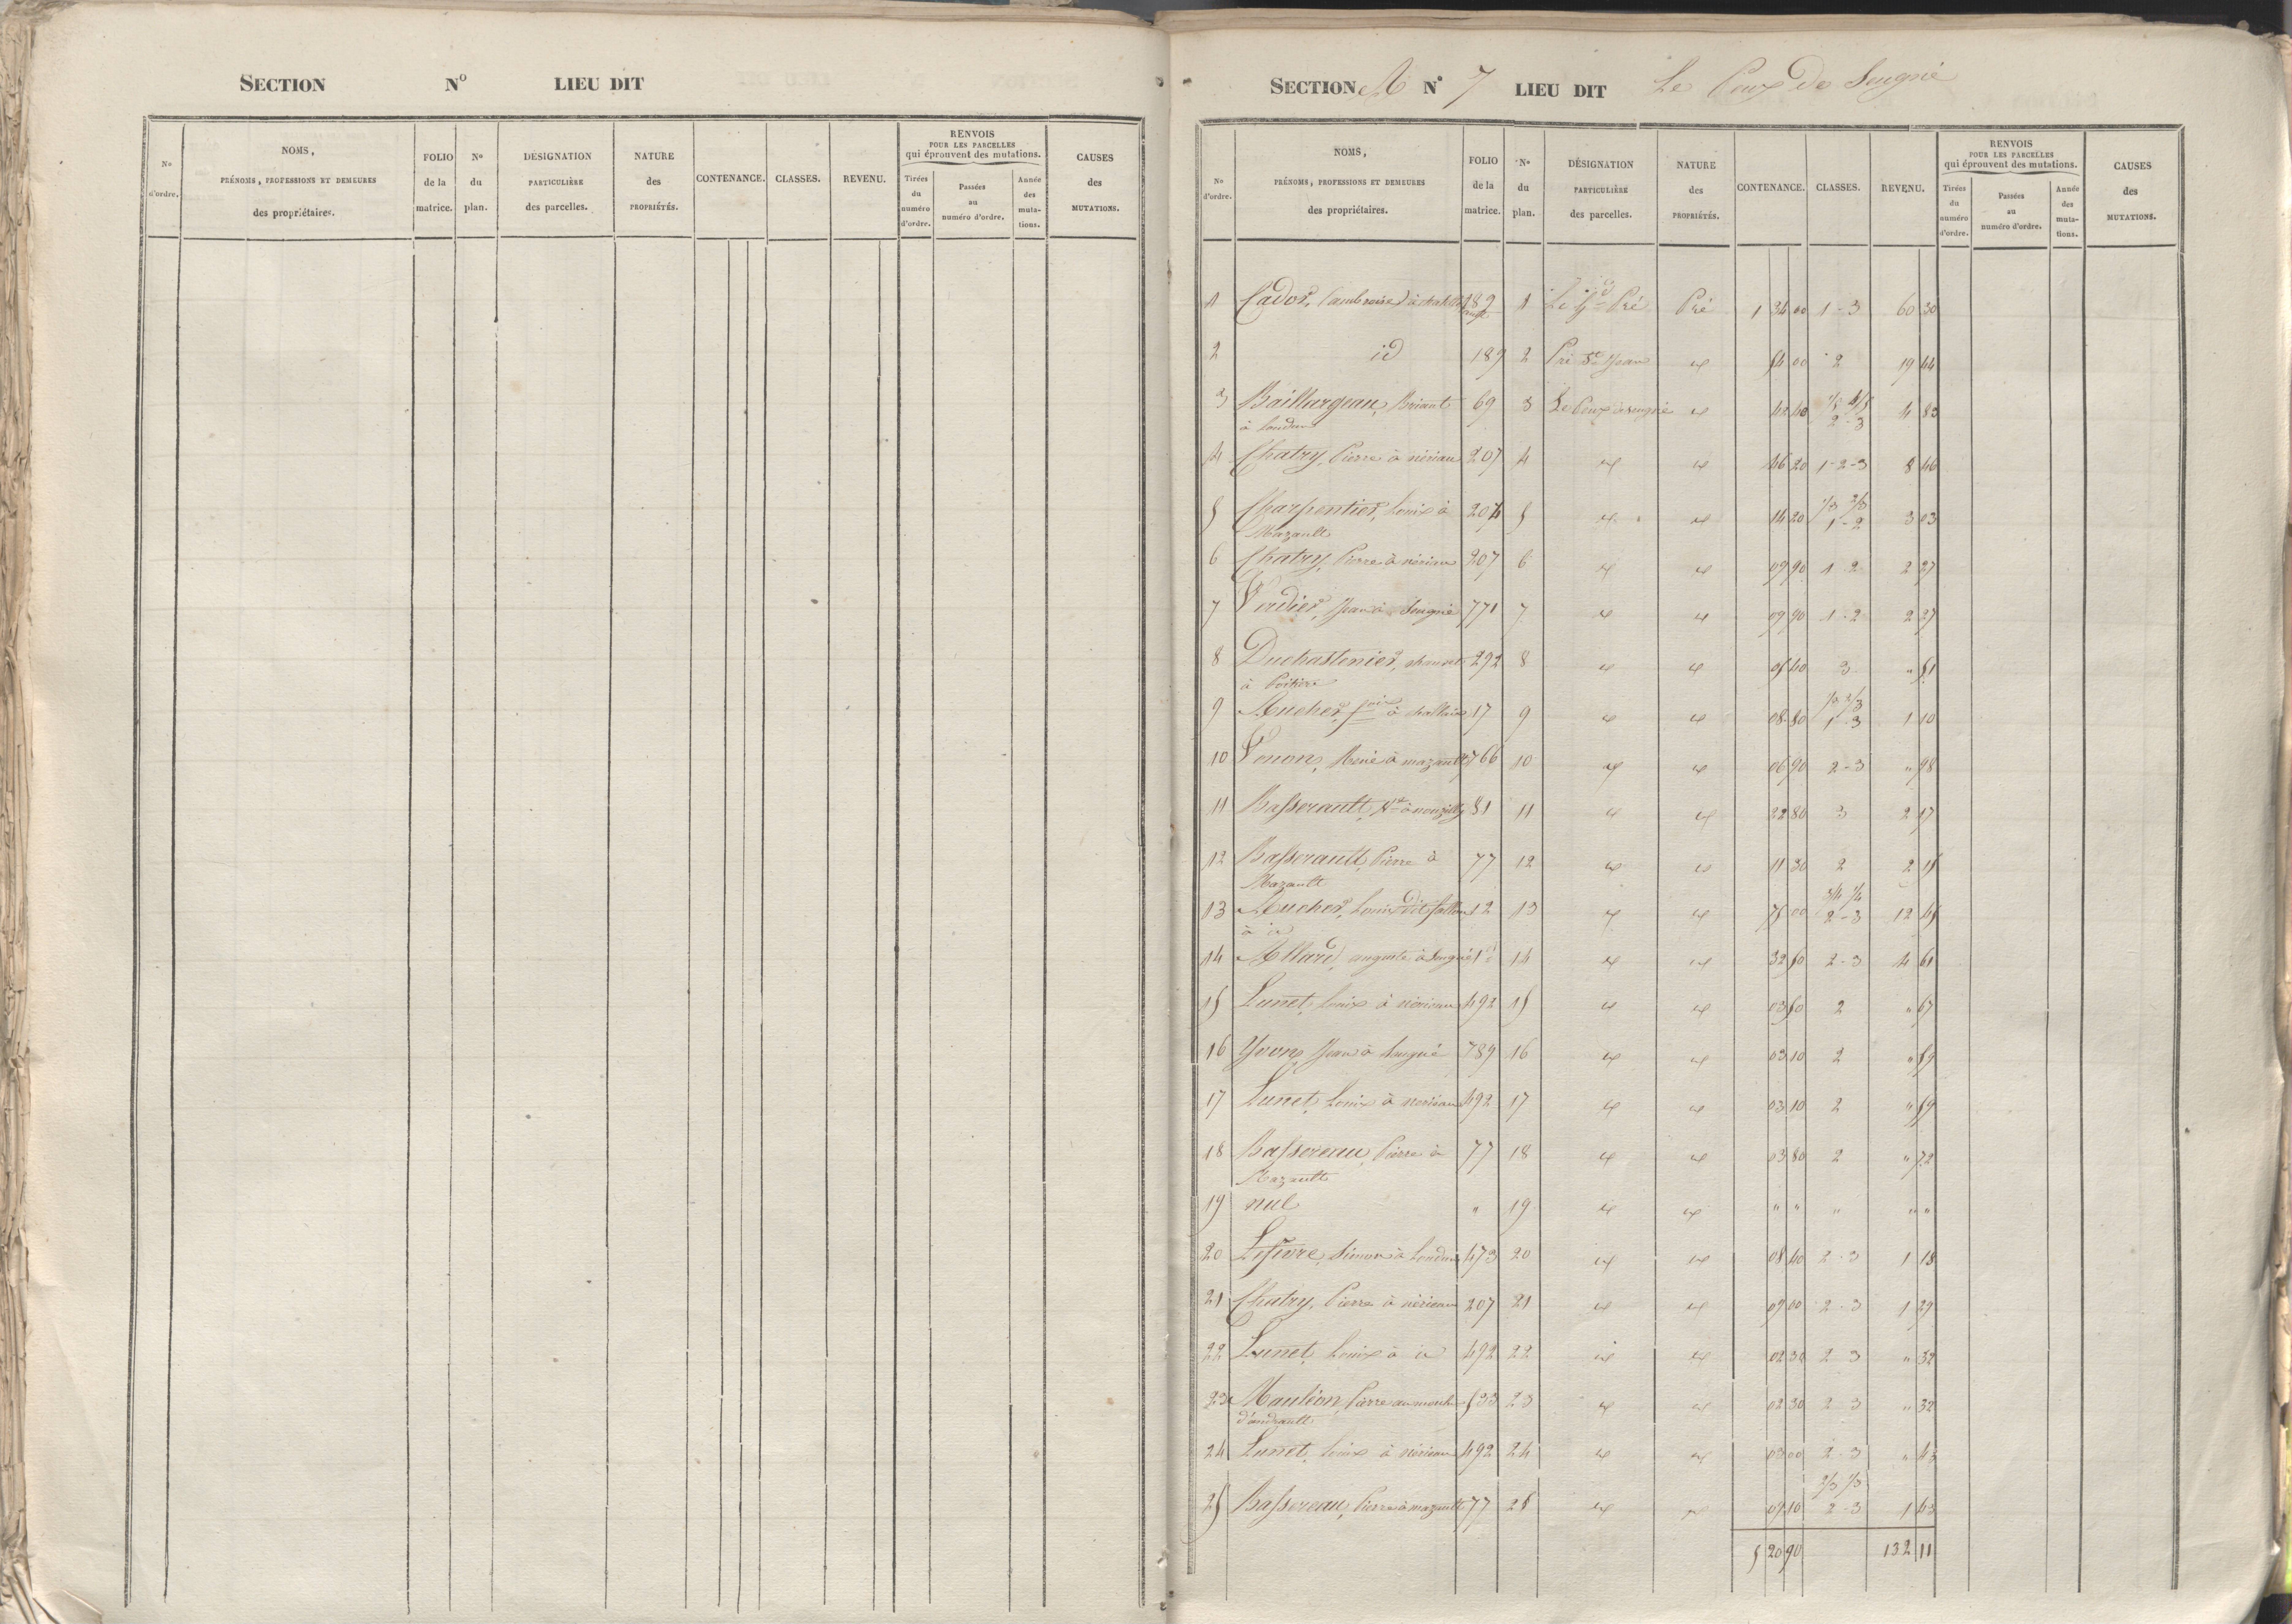 SECTION N° LIEU DIT
N° d'ordre.
NOMS, PRÉNOMS, PROFESSIONS ET DEMEURES des propriétaires.
FOLIO de la matrice.
N° du plan.
DÉSIGNATION PARTICULIÈRE des parcelles.
NATURE des PROPRIÉTÉS.
CONTENANCE.
CLASSES.
REVENU.
RENVOIS POUR LES PARCELLES qui éprouvent des mutations.
Tirées du numéro d'ordre.
Passées au numéro d'ordre.
Année des mutations.
CAUSES des MUTATIONS.
SECTION A N° 7 LIEU DIT Le Ceux de Seugné
N° d'ordre.
NOMS, PRÉNOMS, PROFESSIONS ET DEMEURES des propriétaires.
FOLIO de la matrice.
N° du plan.
DÉSIGNATION PARTICULIÈRE des parcelles.
NATURE des PROPRIÉTÉS.
CONTENANCE.
CLASSES.
REVENU.
RENVOIS POUR LES PARCELLES qui éprouvent des mutations.
Tirées du numéro d'ordre.
Passées au numéro d'ordre.
Année des mutations.
CAUSES des MUTATIONS.
1 Cador, (ambroise) à 189 1 Le Gd Pré Pré 1 34 00 1-3 60 30
2 id 189 2 Pré St Jean id 54 00 2 19 44
3 Baillargeau, Briant 69 3 id 42 40 2-3 4 83
à Loudun
4 Chatry, Pierre à nérieau 207 4 id id 46 20 1-2-3 8 46
5 Charpentier, Louis à 204 5 id id 14 20 1/3 2/3 1-2 3 03
Mazault
6 Chatry, Pierre à nérieau 207 6 id id 09 90 1-2 2 27
7 Verdier, Jean à Seugné 771 7 id id 09 90 1-2 2 27
8 Duchastenier, 292 8 id id 05 40 3 " 51
à Poitiers
9 Aucher, à 17 9 id id 08 80 1/3 2/3 1-3 1 10
10 Venon, René à mazault 766 10 id id 06 90 2-3 " 98
11 Basserault, Vve à nouzilly 81 11 id id 22 80 3 2 17
12 Basserault, Pierre à 77 12 id id 11 30 2 2 15
Mazault
13 Aucher, Louis dit 12 13 id id 75 00 3/4 1/4 2-3 12 45
à id
14 Allard, auguste à Seugné 14 id id 32 50 2-3 4 61
15 Lunet, Louis à nérieau 492 15 id id 03 50 2 " 67
16 Yvon, Jean à Seugné 789 16 id id 03 10 2 " 59
17 Lunet, Louis à nérieau 492 17 id id 03 10 2 " 59
18 Bassereau, Pierre à 77 18 id id 03 80 2 " 72
Mazault
19 nul " 19 id id " " " " "
20 Lefievre, Simon à Loudun 473 20 id id 08 40 2-3 1 18
21 Chatry, Pierre à nérieau 207 21 id id 09 00 2-3 1 29
22 Lunet, Louis à id 492 22 id id 02 30 2-3 " 32
23 Mauléon, Pierre au moulin 533 23 id id 02 30 2-3 " 32
d'andrault
24 Lunet, Louis à nérieau 492 24 id id 03 00 2-3 " 43
25 Bassereau, Pierre à mazault 77 25 id id 09 10 2/3 1/3 2-3 1 43
5 20 90 132 11